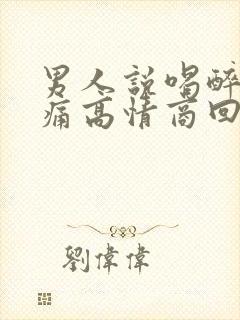 男人說喝醉
痛高情商回
劉偉偉